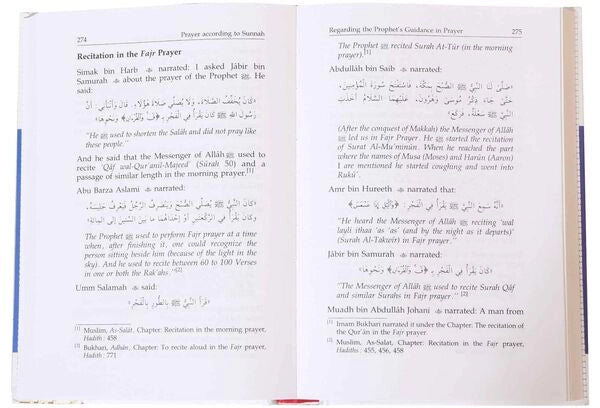 274
Prayer according to Sunnah
Recitation in the Fajr Prayer
Simak bin Harb narrated: I asked Jâbir bin
Samurah ﷺ about the prayer of the Prophet ﷺ. He
said:
«كَانَ يُخَفِّفُ الصَّلَاةَ، وَلَا يُصَلِّي صَلَاةَ هَؤُلَاءِ. قَالَ وَأَنْبَأَنِي: أَنَّ
رَسُولَ اللهِ ﷺ كَانَ يَقْرَأُ فِي الْفَجْرِ بِـ﴿ق وَالْقُرْآنِ﴾ وَنَحْوِهَا»
"He ﷺ used to shorten the Salâh and did not pray like
these people."
And he said that the Messenger of Allâh ﷺ used to
recite 'Qâf wal-Qur'anil-Majeed' (Sûrah 50) and a
passage of similar length in the morning prayer.[1]
Abu Barza Aslami narrated:
«كَانَ النَّبِيُّ ﷺ يُصَلِّي الصُّبْحَ وَيَنْصَرِفُ الرَّجُلُ فَيَعْرِفُ جَلِيسَهُ،
وَكَانَ يَقْرَأُ فِي الرَّكْعَتَيْنِ أَوْ إِحْدَاهُمَا مَا بَيْنَ السِّتِّينَ إِلَى الْمِائَةِ»
The Prophet ﷺ used to perform Fajr prayer at a time
when, after finishing it, one could recognize the
person sitting beside him (because of the light in the
sky). And he used to recite between 60 to 100 Verses
in one or both the Rak'ahs."[2]
Umm Salamah said:
«قَرَأَ النَّبِيُّ ﷺ بِالطُّورِ بِالْفَجْرِ»
[1] Muslim, As-Salât, Chapter: Recitation in the morning prayer,
Hadith : 458
[2] Bukhari, Adhân, Chapter: To recite aloud in the Fajr prayer,
Hadith : 771
Regarding the Prophet's Guidance in Prayer
275
The Prophet ﷺ recited Surah At-Tûr (in the morning
prayer).[1]
Abdullâh bin Saib narrated:
«صَلَّى لَنَا النَّبِيُّ ﷺ الصُّبْحَ بِمَكَّةَ، فَاسْتَفْتَحَ سُورَةَ الْمُؤْمِنِينَ،
حَتَّى جَاءَ ذِكْرُ مُوسَى وَهَرُونَ، عَلَيْهِمَا السَّلَامُ أَخَذَتِ
النَّبِيَّ ﷺ سَعْلَةٌ، فَرَكَعَ»
(After the conquest of Makkah) the Messenger of Allâh
ﷺ led us in Fajr Prayer. He ﷺ started the recitation
of Surat Al-Mu'minûn. When he reached the part
where the names of Musa (Moses) and Harûn (Aaron)
I are mentioned he started coughing and went into
Rukû'.
Amr bin Hureeth narrated that:
«أَنَّهُ سَمِعَ النَّبِيَّ ﷺ يَقْرَأُ فِي الْفَجْرِ: ﴿وَالَّيْلِ إِذَا عَسْعَسَ﴾»
"He heard the Messenger of Allâh ﷺ reciting 'wal
layli ithaa 'as 'as' (and by the night as it departs)'
(Surah Al-Takwîr) in Fajr prayer."
Jâbir bin Samurah narrated:
«كَانَ يَقْرَأُ فِي الْفَجْرِ بِـ﴿ق وَالْقُرْآنِ﴾ وَنَحْوِهَا»
"The Messenger of Allâh ﷺ used to recite Surah Qâf
and similar Surahs in Fajr prayer." [2]
Muadh bin Abdullâh Johani narrated: A man from
[1] Imam Bukhari narrated it under the Chapter: The recitation of
the Qur'ân in the Fajr prayer.
[2] Muslim, As-Salat, Chapter: Recitation in the Fajr prayer,
Hadiths : 455, 456, 458